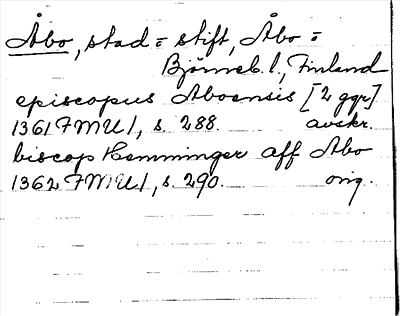 Åbo, stad = stift, Åbo =
Björneb. l., Finland
episcopus Aboensis [2 ggr]
1361 FMU 1, s. 288. avskr.
biscop Hemminger aff Abo
1362 FMU 1, s. 290. orig.